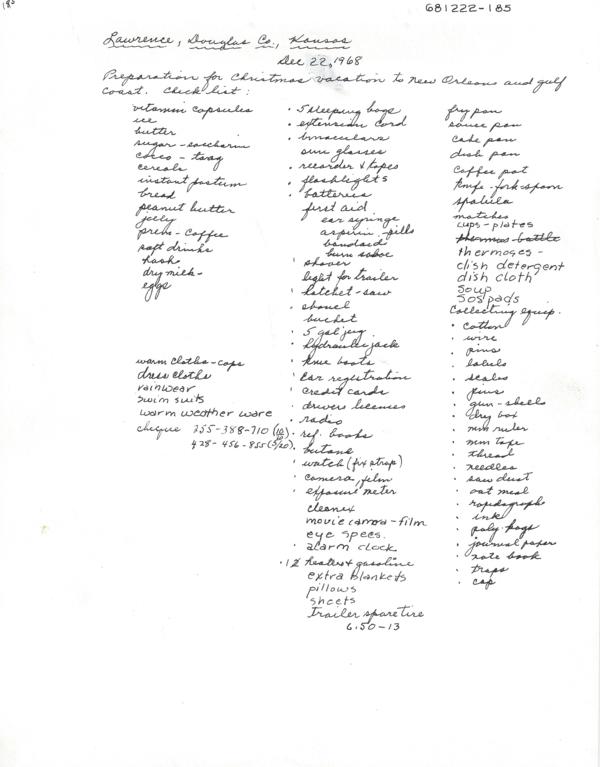 185
681222-185
Lawrence, Douglas Co., Kansas
Dec 22, 1968
Preparation for Christmas vacation to New Orleans and gulf
coast. Check list:
vitamin capsules
ice
butter
sugar - saccharin
coco - tang
cereals
instant postum
bread
peanut butter
jelly
prem - coffee
soft drinks
hash
dry milk -
eggs
warm cloths - caps
dress cloths
rainwear
swim suits
warm weather ware
cheque 255-388-710 (10/20)
428-456-855 (5/20)
5 sleeping bags
extension cord
binoculars
sun glasses
recorder & tapes
flashlights
batteries
first aid
ear syringe
aspirin - pills
bandaid
burn
shaver
light for trailer
hatchet - saw
shovel
bucket
5 gal jug
hydraulic jack
knee boots
car registration
credit cards
drivers licenses
radio
ref. books
butane
watch (fix strap)
camera, film
exposure meter
cleanex
movie camera - film
eye specs.
alarm clock
heater & gasoline
extra blankets
pillows
sheets
trailer spare tire
6.50-13
fry pan
sauce pan
cake pan
dish pan
coffee pot
knife - fork - spoon
spatula
matches
cups - plates
thermos bottle
thermoses -
dish detergent
dish cloth
soup
sos pads
Collecting equip.
cotton
wire
pins
labels
scales
pins
gun - shells
dry box
mm ruler
mm tape
thread
needles
saw dust
oat meal
rapidograph
ink
poly. bags
journal paper
note book
traps
cap